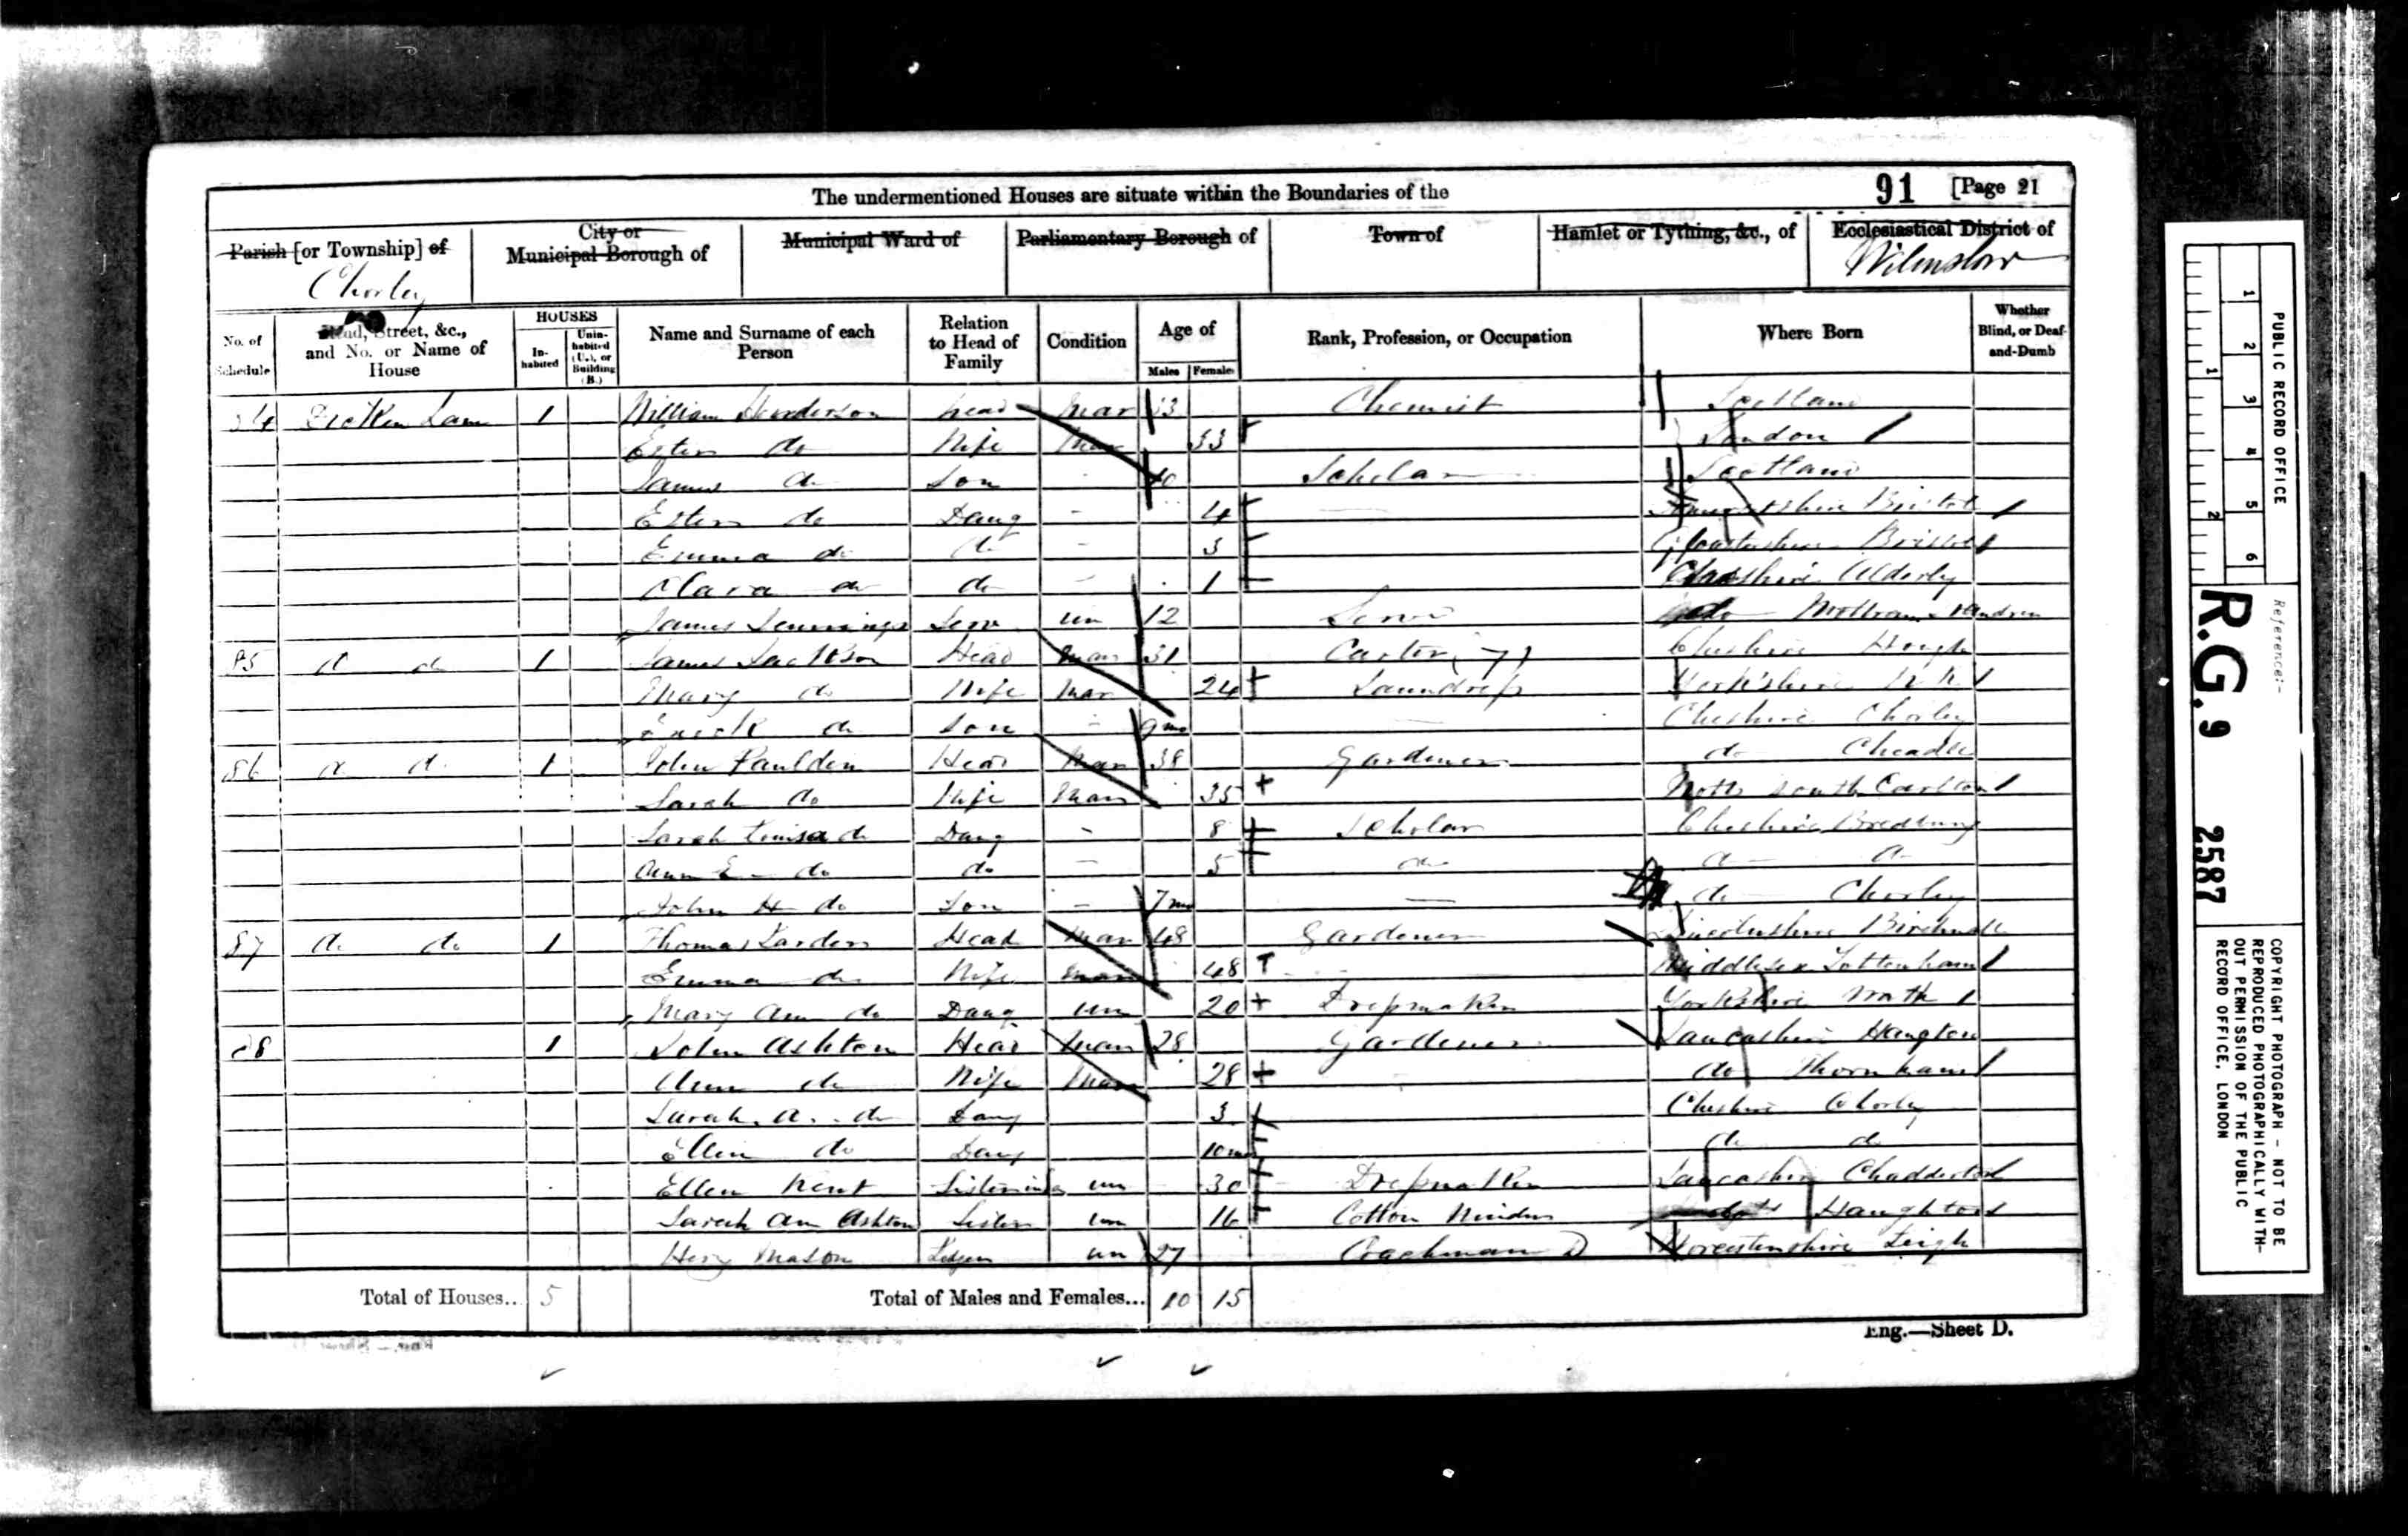 The undermentioned Houses are situate within the Boundaries of the 91 [Page 21
Parish [or Township] of City or Municipal Borough of Municipal Ward of Parliamentary Borough of Town of Hamlet or Tything, &c., of Ecclesiastical District of
Chorley Wilmslow
No. of Schedule Road, Street, &c., and No. or Name of House HOUSES Inhabited Uninhabited (U.), or Building (B.) Name and Surname of each Person Relation to Head of Family Condition Age of Males Females Rank, Profession, or Occupation Where Born Whether Blind, or Deaf-and-Dumb
84 1 William Henderson head mar 33 Chemist Scotland
Ester do Wife Mar 33 London
James do Son - 10 Scholar Scotland
Ester do Daug - 4 Bristol
Emma do do - 3 Bristol
Clara do do - 1 Cheshire Alderly
James Jennings Serv un 12 do Mottram
85 d do 1 James Jackson Head Mar 31 Carter Cheshire Hough
Mary do Wife Mar 24 Laundress Yorkshire
do Son - 9 mo Cheshire Chorley
86 d d 1 John Head Mar 38 Gardener do Cheadle
Sarah do Wife Mar 35 Notts south Carlton
Sarah Louisa do Daug - 8 Scholar Cheshire Bredbury
Ann E do do - 5 do d d
John H do Son - 7 mo do Chorley
87 do do 1 Thomas Head Mar 48 Gardener Lincolnshire
Emma do Wife Mar 48 Middlesex Tottenham
Mary Ann do Daug Un 20 Dressmaker Yorkshire
88 1 John Ashton Head Mar 28 Gardener Lancashire
Ann do Wife Mar 28 do Thornham
Sarah. A. do Daug 3 Cheshire Chorley
Ellen do Daug 10 mo do do
Ellen Kent Sister in law un 30 Dressmaker Lancashire Chadderton
Sarah Ann Ashton Sister un 16 Cotton Winder do Haughton
Mason un 27 Coachman D Worcestershire Leigh
Total of Houses.. 5 Total of Males and Females... 10 15
Eng.—Sheet D.
PUBLIC RECORD OFFICE
1 2 3 4 5 6
1 2
Reference:-
R.G. 9 2587
COPYRIGHT PHOTOGRAPH - NOT TO BE
REPRODUCED PHOTOGRAPHICALLY WITH-
OUT PERMISSION OF THE PUBLIC
RECORD OFFICE, LONDON